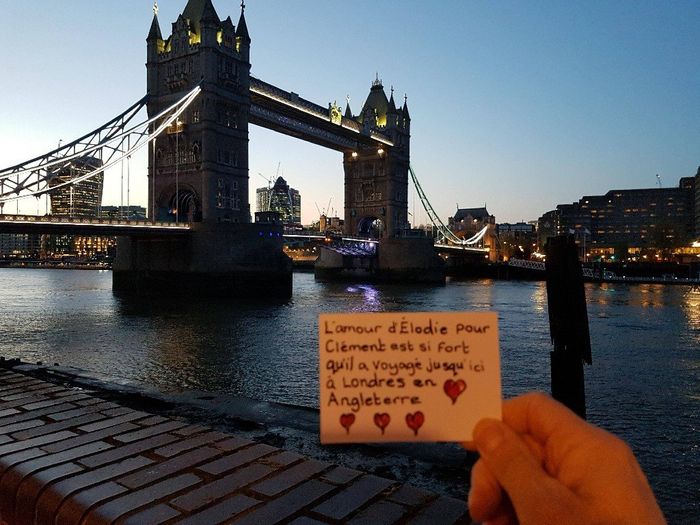 L'amour d'Élodie pour
Clément est si fort
qu'il a voyagé jusqu'ici
à Londres en
Angleterre